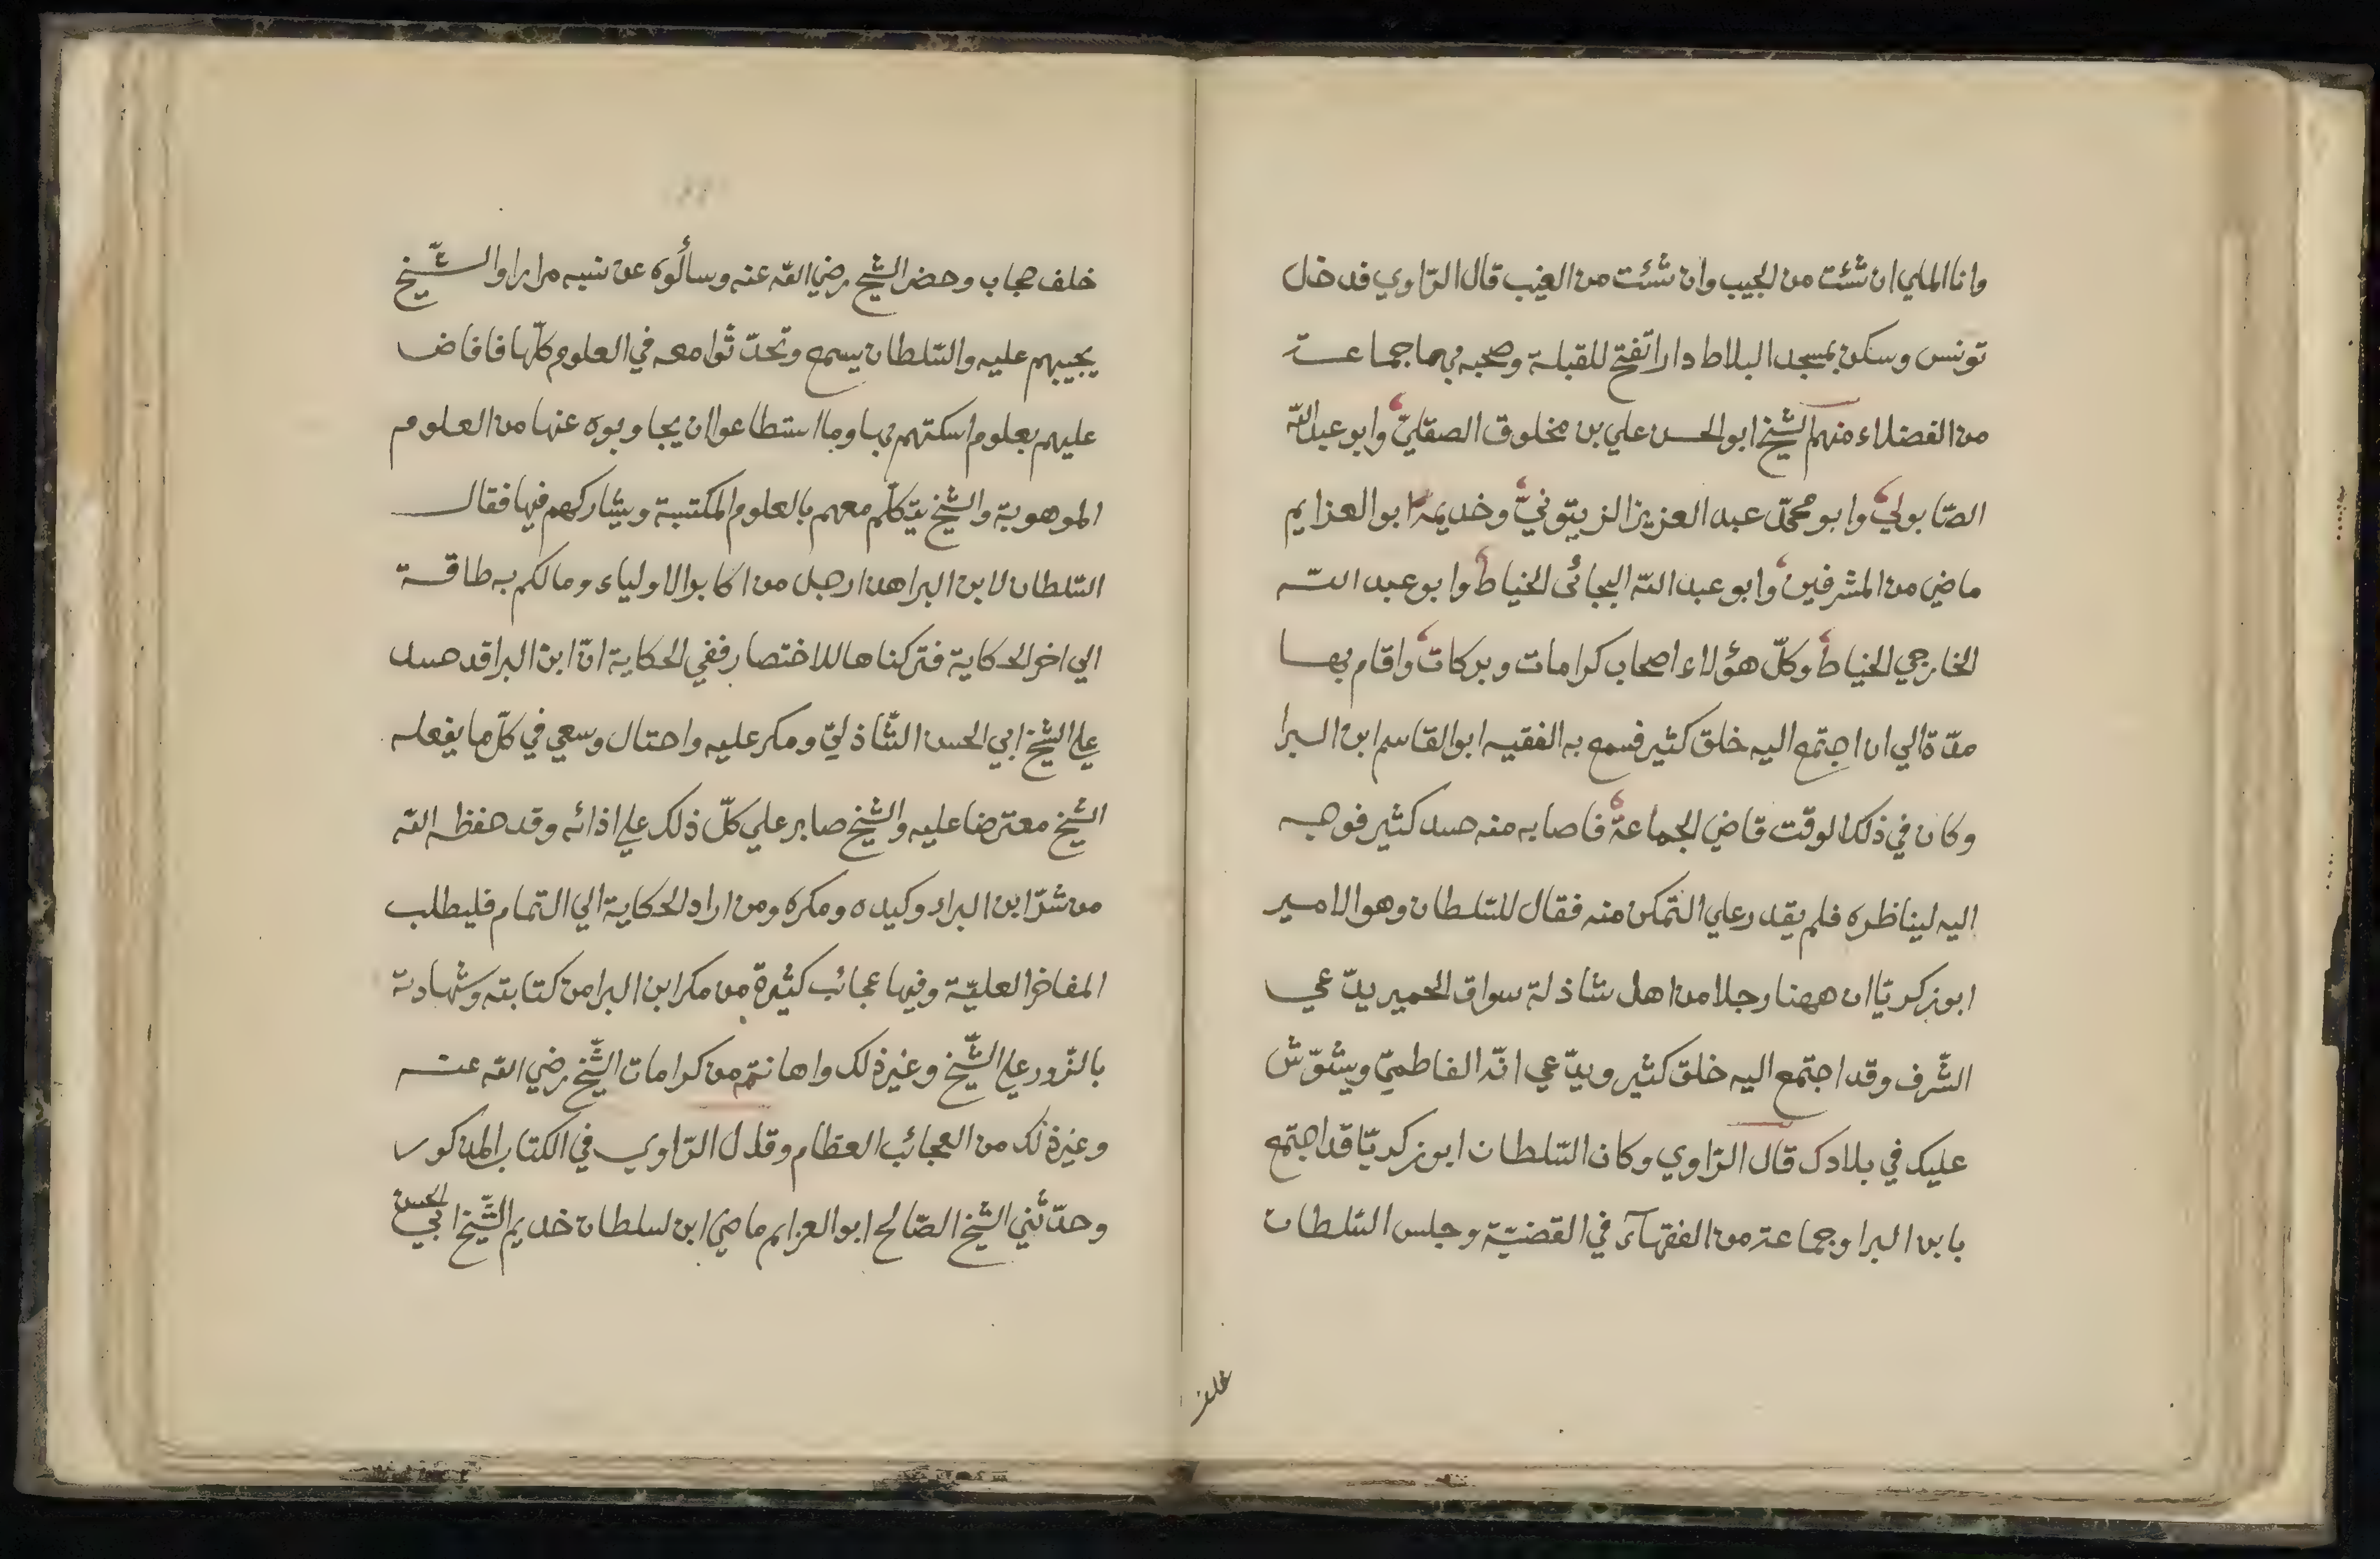 وانا الملي ان شئت من الجيب وان شئت من الغيب قال الرّاوي فدخل
تونس وسكن بمسجد البلاط دارا تفتح للقبلة وصحبه بها جماعة
من الفضلاء منهم الشّيخ ابو الحسن علي بن مخلوق الصقليّ وابو عبد اللّه
الصّابوليّ وابو محمّد عبد العزيز الزيتونيّ وخديمه ابو العزايم
ماضي من المشرفين وابو عبد اللّه البجائى الخياط وابو عبد اللّه
الخارجي الخياط وكلّ هؤلاء اصحاب كرامات وبركات واقام بها
مدّة الي ان اجتمع اليه خلق كثير فسمع به الفقيه ابو القاسم ابن البرا
وكان في ذلك الوقت قاضي الجماعة فاصابه منه حسد كثير فوجه
اليه ليناظره فلم يقدر علي التّمكن منه فقال للسّلطان وهو الامير
ابو زكريّا ان ههنا رجلا من اهل شاذلة سواق الحمير يدّعي
الشّرف وقد اجتمع اليه خلق كثير ويدّعي انّه الفاطميّ ويشوّش
عليك في بلادك قال الرّاوي وكان السّلطان ابو زكريّا قد اجتمع
بابن البرا وجماعة من الفقهآء في القضيّة وجلس السّلطان
خلف
خلف حجاب وحضر الشّيخ رضي اللّه عنه وسألوه عن نسبه مرارا والشّيخ
يجيبهم عليه والسّلطان يسمع وتحدّثوا معه في العلوم كلّها فافاض
عليهم بعلوم اسكتهم بها وما استطاعوا ان يجاوبوه عنها من العلوم
الموهوبة والشّيخ يتكلّم معهم بالعلوم المكتسبة ويشاركهم فيها فقال
السّلطان لابن البرا هذا رجل من اكابر الاولياء ومالكم به طاقة
الي اخر الحكاية فتركناها للاختصار ففي الحكاية انّ ابن البرا قد حسد
علي الشّيخ ابي الحسن الشّاذليّ ومكر عليه واحتال وسعي في كلّ ما يفعله
الشّيخ معترضا عليه والشّيخ صابر علي كلّ ذلك علي اذائه وقد حفظه اللّه
من شرّ ابن البراء وكيده ومكره ومن اراد الحكاية الي التمام فليطلب
المفاخر العليّة وفيها عجائب كثيرة من مكر ابن البرا من كتابته وشهادته
بالزّور علي الشّيخ وغير ذلك واهانته من كرامات الشّيخ رضي اللّه عنه
وغير ذلك من العجائب العظام وقال الرّاوي في الكتاب المذكور
وحدّثني الشّيخ الصّالح ابو العزايم ماضي ابن سلطان خديم الشّيخ ابي الحسن